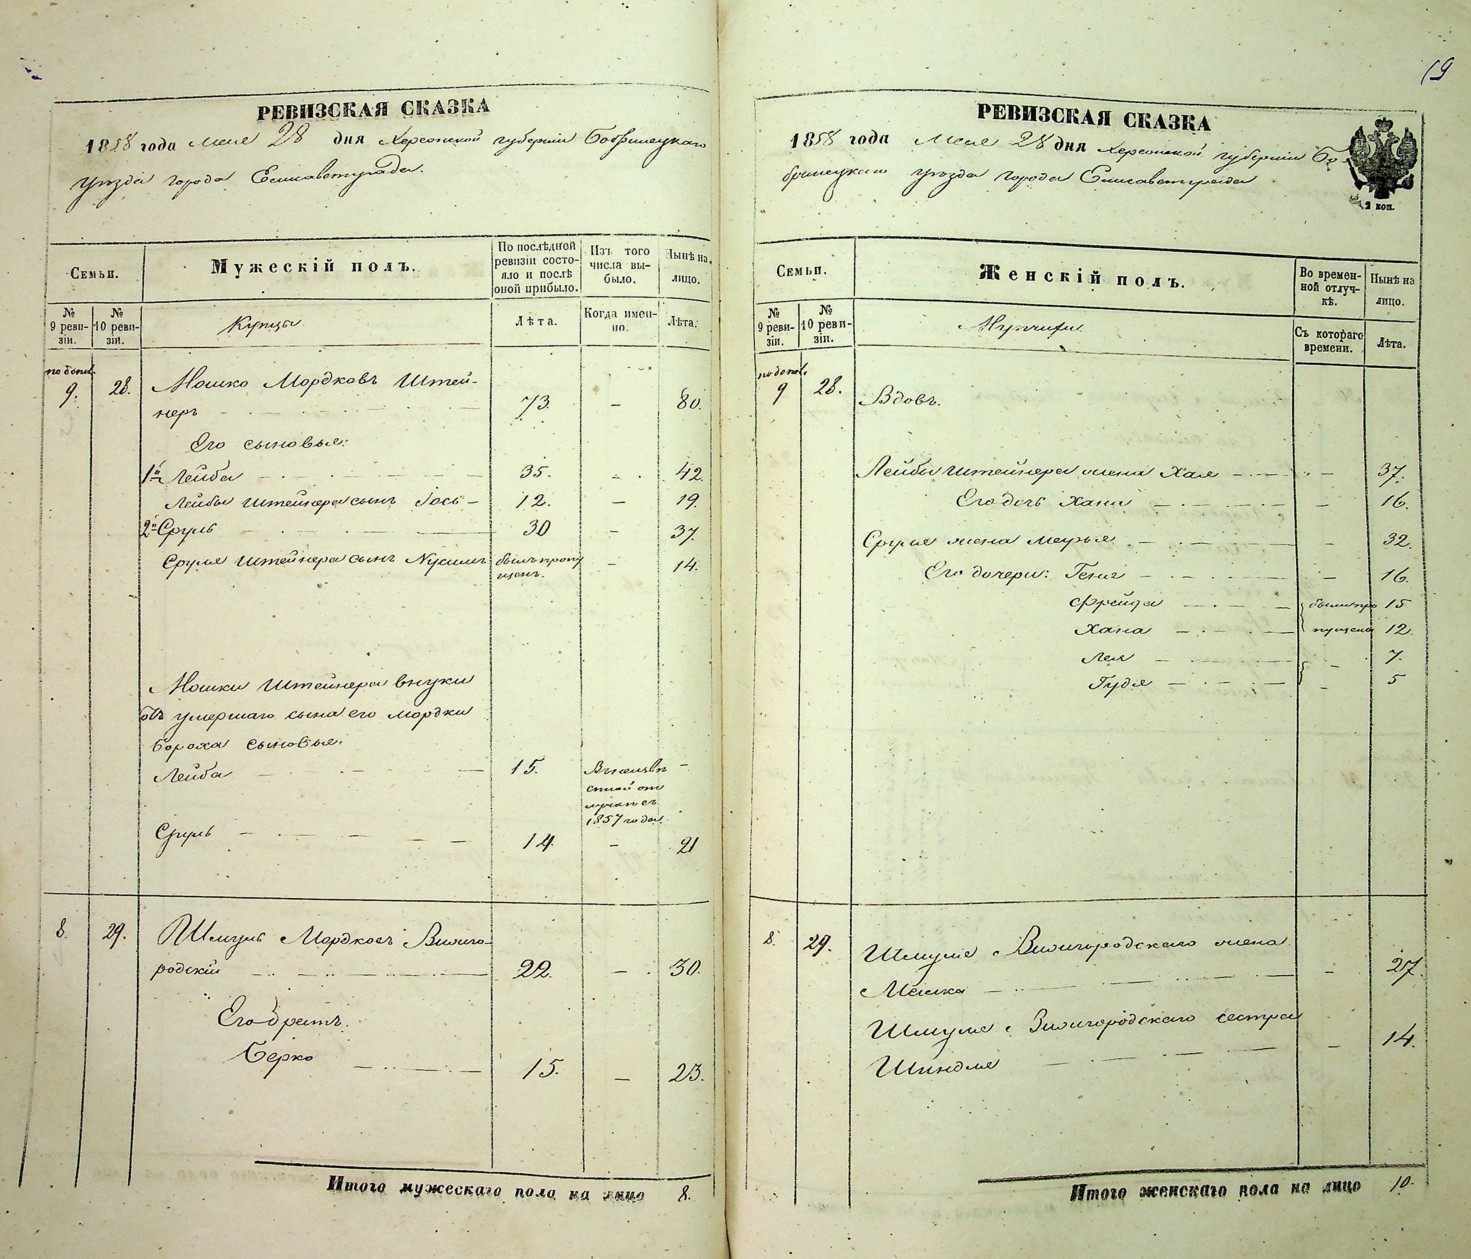 19
РЕВИЗСКАЯ СКАЗКА
1858 года Мая 28 дня Херсонской губернии Бобринецкаго
уѣзда города Елисаветграда.
Семьи.
Мужескій полъ.
По послѣдней ревизіи состояло и послѣ оной прибыло.
Изъ того числа выбыло.
Нынѣ на лицо.
№ 9 ревизіи.
№ 10 ревизіи.
Купцы
Лѣта.
Когда именно.
Лѣта.
9. 28. Мошко Мордковъ Штей-
неръ 73. – 80.
Его сыновья:
1й Лейба 35. – 42.
Лейбы Штейнера сынъ Іось 12. – 19.
2й Сруль 30 – 37.
Сруля Штейнера сынъ Нусимъ былъ пропу – 14.
щенъ.
Мошки Штейнера внуки
отъ умершаго сына его Мордки
Бороха сыновья.
Лейба 15. Въ неизвѣ –
стной от
лучкѣ съ
1857 года.
Сруль 14. – 21
8. 29. Шмуль Мордковъ Вышего-
родскій 22. – 30.
Его братъ.
Берко 15. – 23.
Итого мужескаго пола на лицо 8.
РЕВИЗСКАЯ СКАЗКА
1858 года Мая 28 дня Херсонской губерніи Бо-
бринецкаго уѣзда города Елисаветграда
2 коп.
Семьи.
Женскій полъ.
Во временной отлучкѣ.
Нынѣ на лицо.
№ 9 ревизіи.
№ 10 ревизіи.
Съ котораго времени.
Лѣта.
9 28. Вдовъ.
Лейбы Штейнера жена Хая – 37.
Его дочь Хана – 16.
Сруля жена Меирья – 32.
Его дочери: Гения – 16.
Фрейда были про 15
Хана пущены 12.
Лея – 7.
Гудя – 5
8. 29. Шмуля Вышегородскаго жена
Мошка – 27.
Шмуля Вышегородскаго сестра
Шиндля – 14.
Итого женскаго пола на лицо 10.